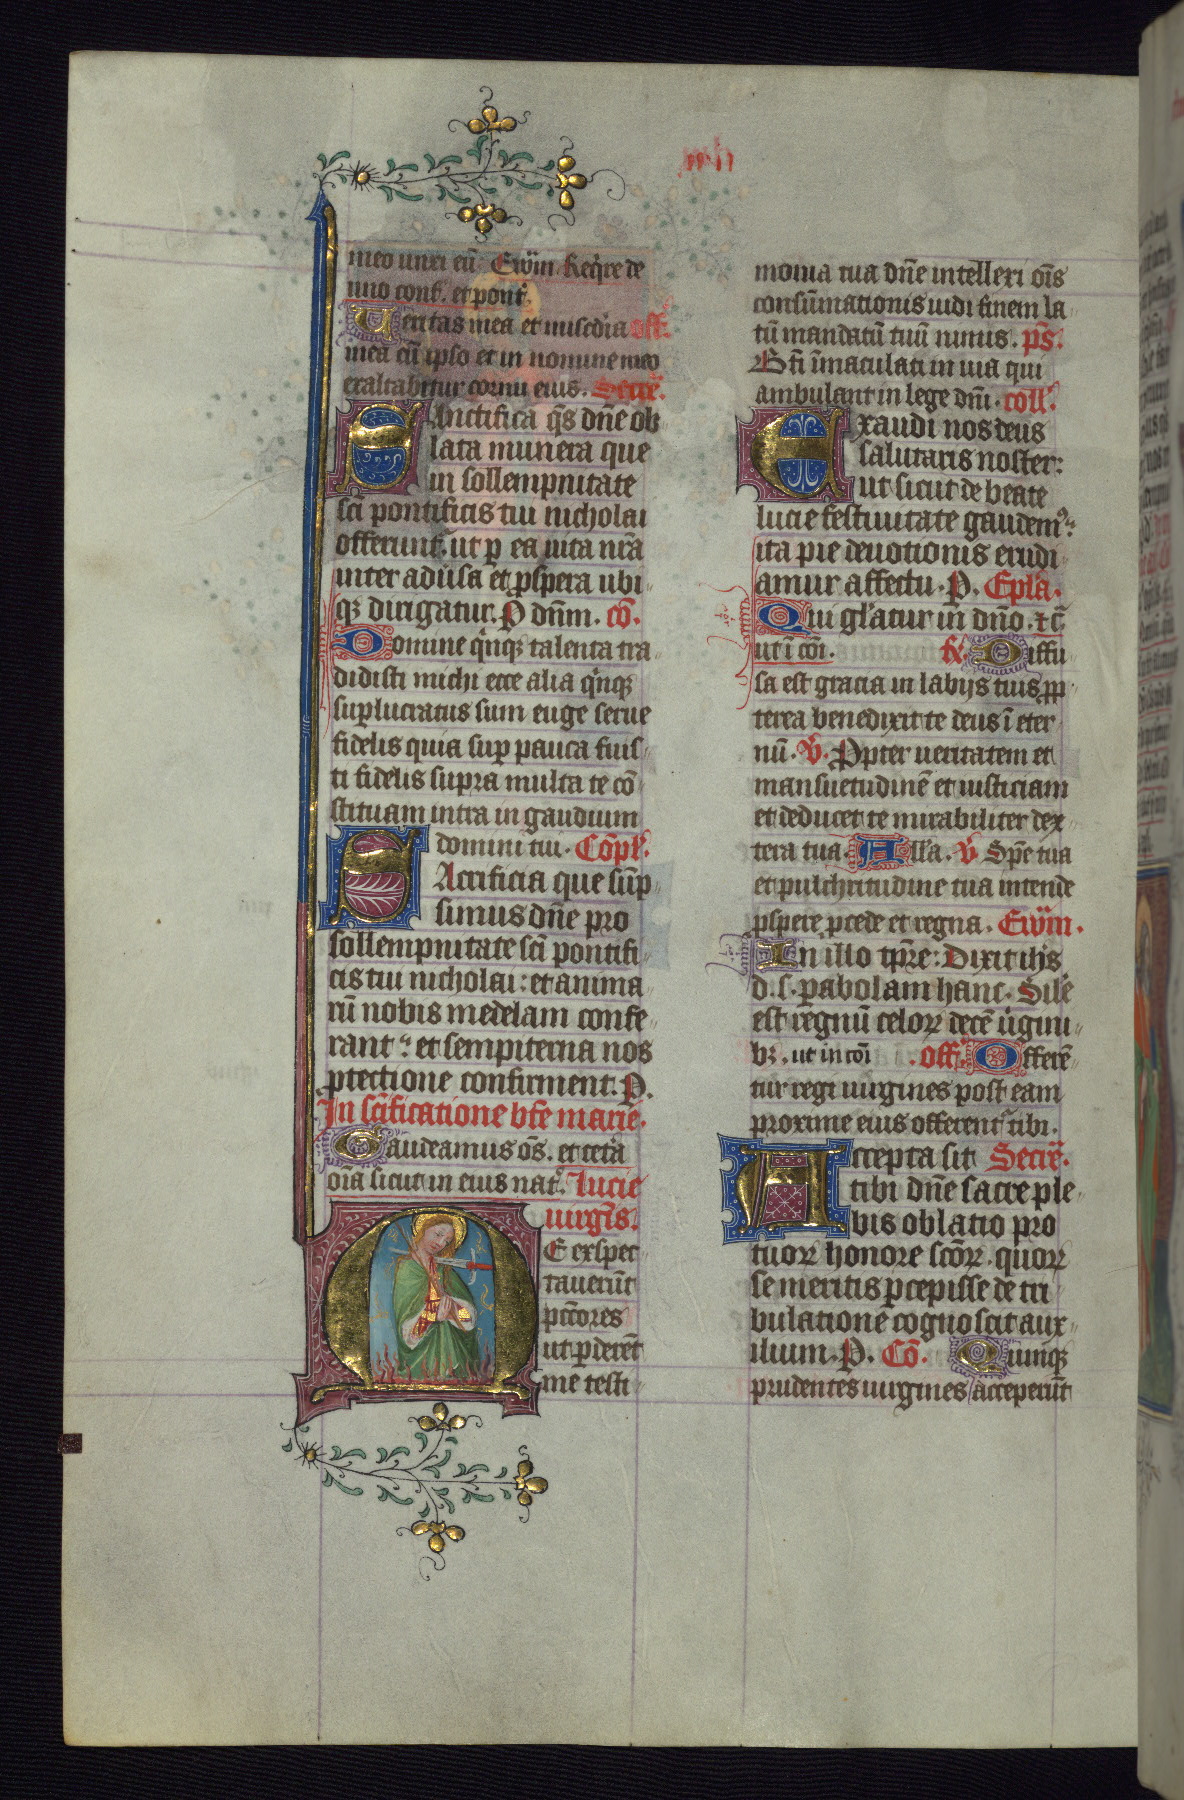 meo unxi eū Ewm̄ Reqͥre de
uno conf. et pont͛.
Ueritas mea et mis̄cdīa off͛.
mea cū ipso et in nomine meo
exaltabitur cornu eius. Secre͛.
Sanctifica q̄s dn̄e ob
lata munera que
in sollempnitate
sc̄i pontificis tui nicholai
offerunt͛. ut p ea uita nr̄a
inter aduersa et prospera ubi
qꝫ dirigatur. P dn̄m. cō.
Domine qͥnqꝫ talenta tra
didisti michi ecce alia qͥnqꝫ
suplucratus sum euge serue
fidelis quia sup pauca fuis
ti fidelis supra multa te cō
stituam intra in gaudium
domini tui. Cōpl͛.
Sacrificia que sūp
simus dn̄e pro
sollempnitate sc̄i pontifi
cis tui nicholai: et anima
rū nobis medelam confe
rant: et sempiterna nos
ptectione confirment. P.
In sc̄ificatione bt̄e marie.
Gaudeamus oēs. et cetͣa
oīa sicut in eius nat͛. lucie
uirgīs.
Me exspec
tauerūt
pcc̄ores
ut pderēt
me testi
xvii
monia tua dn̄e intellexi oīs
consūmationis uidi finem la
tū mandatū tuū nimis. p̄s.
Bt̄i īmaculati in uia qui
ambulant in lege dn̄i. coll͛.
Exaudi nos deus
salutaris noster:
ut sicut de beate
lucie festiuitate gaudemꝰ:
ita pie deuotionis erudi
amur affectu. P. Epl̄a.
Qui gl̄atur in dn̄o. ⁊ c̄.
ut ī cōi. R͛. Diffu
sa est gracia in labijs tuis pp
terea benedixit te deus ī eter
nū. V͛. Ppter ueritatem et
mansuetudinē et iusticiam
et deducet te mirabiliter dex
tera tua All̄a. V͛. Spē tua
et pulchritudine tua intende
pspere pcede et regna. Ewm̄.
In illo tp̄re: Dixit ih̄s
d. s. pabolam hanc. Sil̄e
est regnū celoꝝ decē uͥgini
bꝫ. ut in cōi. off͛. Offerē
tur regi uirgines post eam
proxime eius offerentͬ tibi.
Accepta sit Secre͛.
tibi dn̄e sacre ple
bis oblatio pro
tuoꝝ honore sc̄oꝝ. quoꝝ
se meritis pcepisse de tri
bulatione cognoscit aux
ilium. P. Cō. Quinqꝫ
prudentes uirgines acceperūt